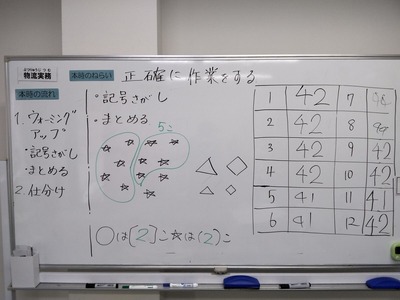 ぶつりゅうじつむ
物流実務
本時のねらい 正確に作業をする
本時の流れ
1. ウォーミング
アップ
・記号さがし
・まとめる
2. 仕分け
・記号さがし
・まとめる
5こ
○は[2]こ☆は(2)こ
1 42 7
2 42 8
3 42 9 42
4 42 10 42
5 41 11 41
6 41 12 42